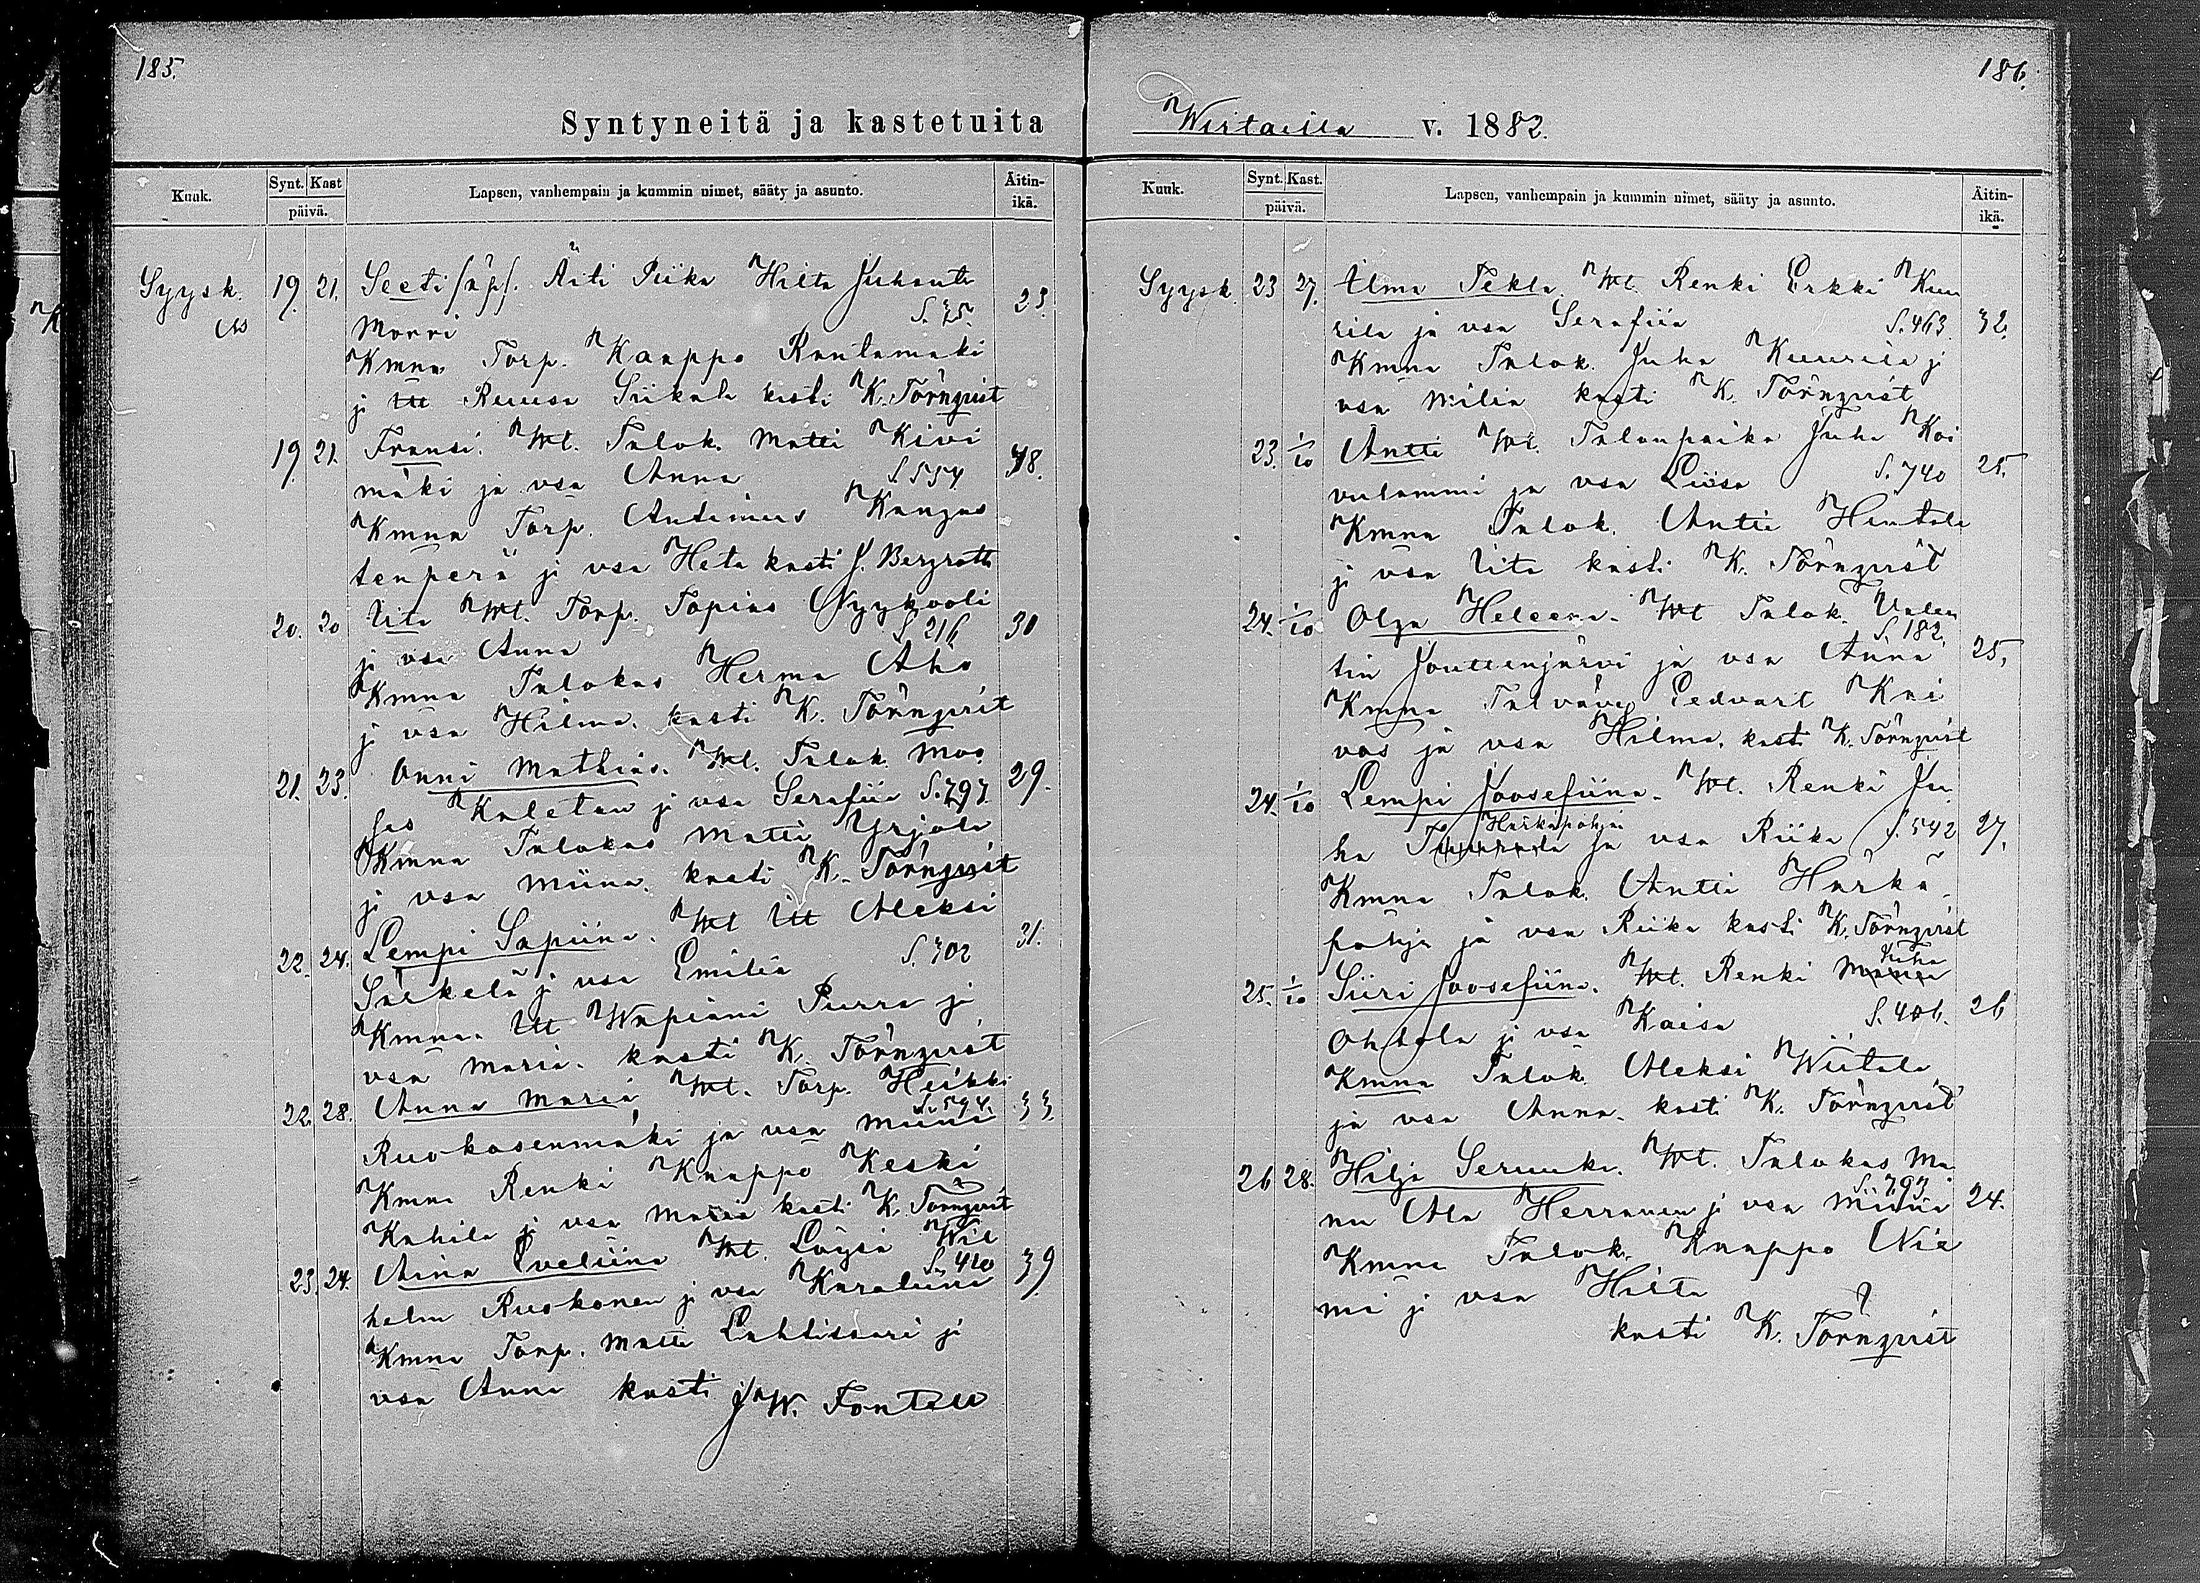 185.
Syntyneitä ja kastetuita
Kuuk.
Synt. Kast
päivä.
Lapsen, vanhempain ja kummin nimet, sääty ja asunto.
Äitin-
ikä.
Syysk. 19. 21. Seeti /äp/. Äiti Piika Hilta Juhant. 23.
Morri S. 75.
Kmna Torp. Kaappo Rautamäki
j Itt Ruusa Siikala kasti K. Törnqvist
19. 21. Fransi. Wt. Talok. Matti Kivi 48.
mäki ja vsa Anna S. 554
Kmna Torp. Antimus Kangas
tenperä j vsa Heta kasti J. Bergroth
20. 20 Iita Wt. Torp. Topias Nyykooli 30
j vsa Anna S. 216
Kmna Talokas Herma Aho
j vsa Hilma. kasti K. Törnqvist
21. 23. Onni Mathias. Wt. Talok. Moo 29.
ses Kaletau j vsa Serafiia S. 797.
Kmna Talokas Matti Yrjola
j vsa Miina. kasti K. Törnqvist
22. 24. Lempi Sapiina. Wt Itt Aleksi 31.
Säekelä j vsa Emilia S. 302
Kmna. Itt Wapiani Purra ja
vsa Maria. kasti K. Törnqvist
22. 28. Anna Maria Wt. Torp. Heikki 33.
S. 594.
Ruokosenmäki ja vsa Miina
Kmna Renki Kaappo Keski
Kahila j vsa Maria kasti K. Törnqvist
23. 24. Aina Eveliina Wt. Löysä Wil 39.
S. 420
helm Ruokonen j vsa Karoliina
Kmna Torp. Matti Lahtisaari ja
vsa Anna kasti J. W. Fontell
186.
v. 1882.
Kuuk.
Synt. Kast.
päivä.
Lapsen, vanhempain ja kummin nimet, sääty ja asunto.
Äitin-
ikä.
Syysk. 23 27. Elma Tekla. Wt. Renki Erkki Kuu
rila ja vsa Serafiia S. 463. 32.
Kmna Talok. Juha Kuurila j
vsa Milia kasti K. Törnqvist
23. 1/10 Antti Wt. Talonpoika Juha Koi
vulammi ja vsa Liisa S. 740 25.
Kmna Talok. Antti Hentala
j vsa Iita kasti K. Törnqvist
24. 1/10 Olga Heleena. Wt Talok. Valen
S. 182.
tin Jouttenjärvi ja vsa Anna 25.
Kmna Talväv. Eedvart Kai
vos ja vsa Hilma. kasti K. Törnqvist
24. 1/10 Lempi Joosefiina. Wt. Renki Ju
Härkäpohja
ha ja vsa Riika S. 542 27.
Kmna Talok. Antti Härkä-
pohja ja vsa Riika kasti K. Törnqvist
Juha
25. 1/10 Siiri Joosefiina. Wt. Renki
Ohtola j vsa Kaisa S. 406. 26
Kmna Talok. Aleksi Wiitala
ja vsa Anna. kasti K. Törnqvist
26 28. Hilja Seruuki. Wt. Talokas Ma
S. 793.
nu Ala Herranen j vsa Miina 24.
Kmna Talok. Kaappo Nie
mi j vsa Hilta
kasti K. Törnqvist